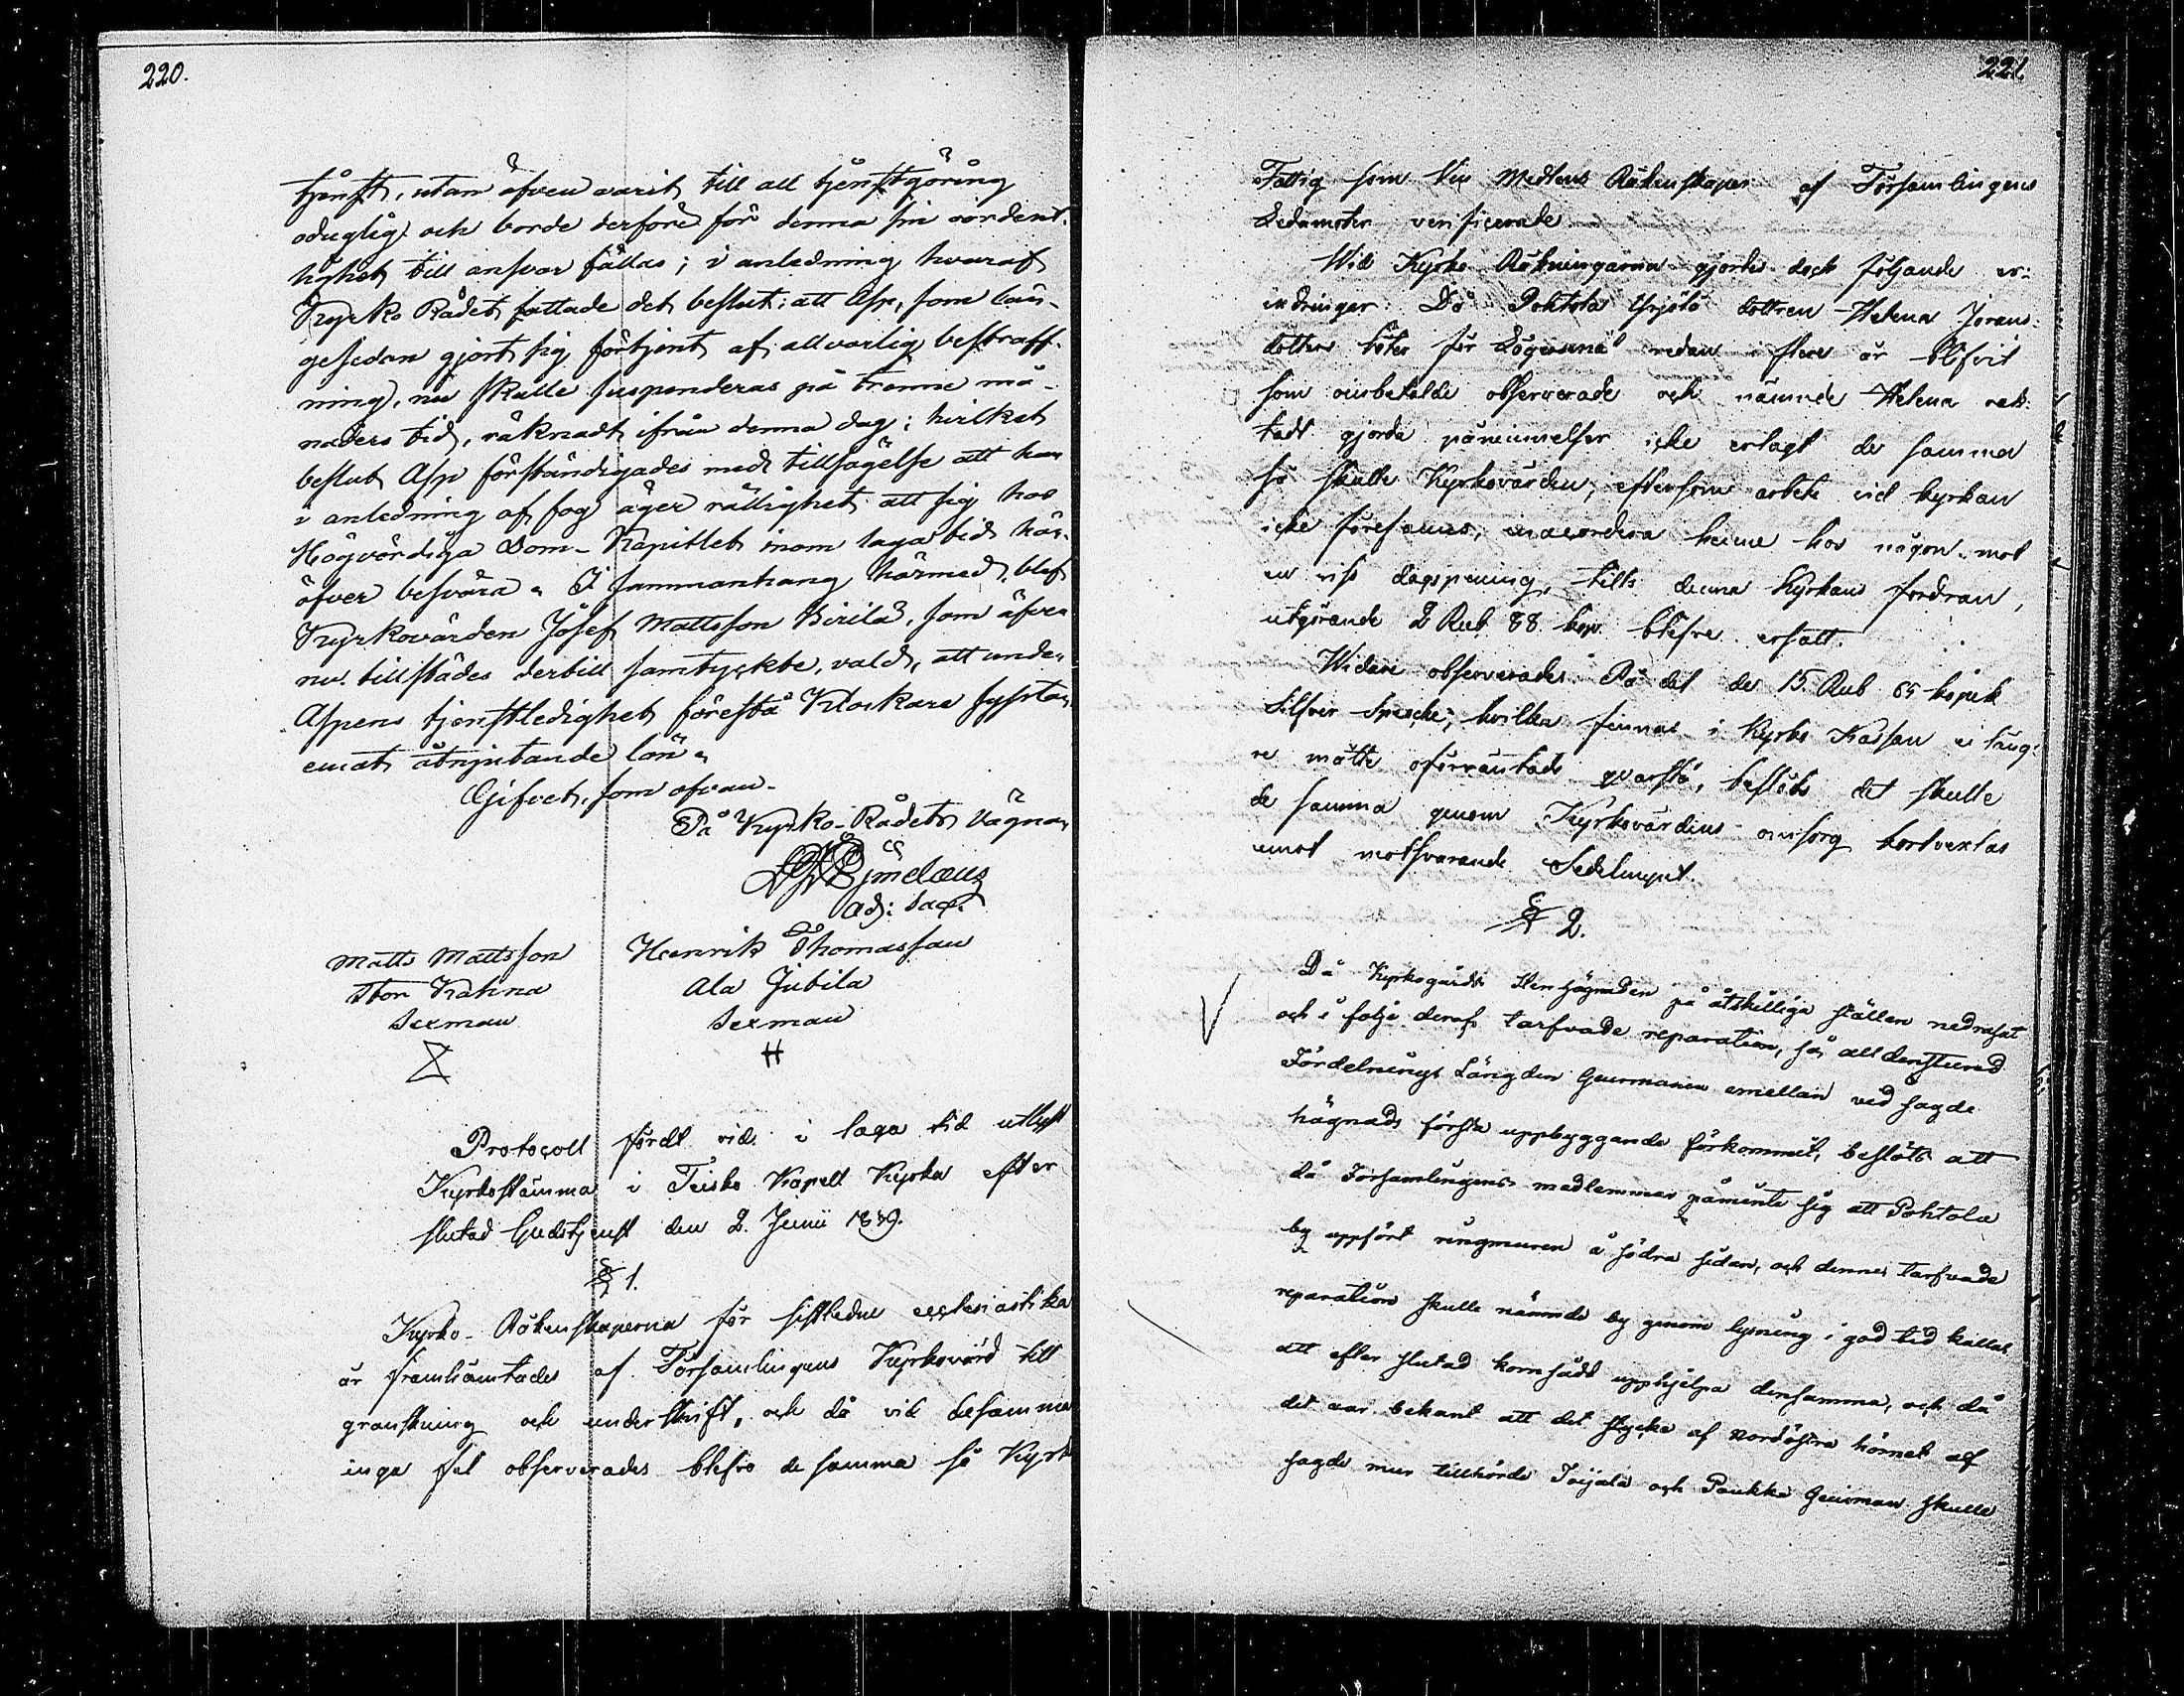 220.
tjenst, utan äfven varit till all tjenstgöring
oduglig och borde derföre för denna sin vördent-
lighet till ansvar fällas; i anledning hvaraf
Kyrko Rådet fattade det beslut: att Asp, som län-
gesedan gjort sig förtjent af allvarlig bestraff-
ning, nu skulle suspenderas på trenne må-
naders tid, räknadt ifrån denna dag; hvilket
beslut Asp förständigades med tillsägelse att han
i anledning af fog äger rättighet att sig hos
Högvördiga Dom-Kapitlet inom laga tid här-
öfver besvära. I sammanhang härmed, blef
Kyrkovärden Josef Mattsson Birilä, som äfven
nu tillstädes dertill samtyckte, vald, att under
Aspens tjenstledighet förestå Klockare sysslan
emot åtnjutande lön.
Gifvet, som ofvan.
På Kyrko-Rådets Vägnar
Adj: Sacr.
Matts Mattsson Henrik Thomasson
Stor Kahna Ala Jutila
Sexman Sexman
Protocoll fördt vid i laga tid utlyst
Kyrkostämma i Teisko Kapell Kyrka efter
slutad Gudstjenst den 2. Junii 1839.
§ 1.
Kyrko-Räkenskaperna för sistledne ecclesiastika
år framhämtades af Församlingens Kyrkovärd till
granskning och underskrift, och då vid desamma
inga fel observerades blefvo de samma så Kyrk
221.
Fattig som Vin Medlens Räkenskaper af Församlingens
Ledamöter verificerade
Wid Kyrko Räkningarna gjordes dock följande er-
indringar: Då Pohtola Yrjölä dottren Helena Jörans-
dotters böter för Lägersmål redan i flere år blifvit
som oinbetalde observerade och nämnde Helena oak-
tadt gjorda påminnelser icke erlagt de samma
så skulle Kyrkovärden, eftersom arbete vid kyrkan
icke förefanns, inaccordera henne hos någon mot
en viss dagspenning, tills denna Kyrkans fordran,
utgörande 2 Rub 88 kop. blefve ersatt.
Widare observerades: På det de 15 Rub 65 kopek
Silfver Specie, hvilka finnas i Kyrko Kassan ei läng-
re måtte oförräntade qvarstå, beslöts det skulle
de samma genom Kyrkovärdens omsorg bortvexlas
emot motsvarande Sedelmynt.
§ 2.
Då Kyrkogårds Stenhägnaden på åtskilliga ställen nedrasat
och i följe deraf tarfvade reparation, så alldenstund
Fördelnings Längden Grannarna emellan vid sagde
hägnads första uppbyggande förkommit, beslöts att
då Församlingens medlemmar påminte sig att Pohtola
by uppfört ringmuren å södra sidan, och dennes tarfvade
reparation skulle nämnde by genom lysning i god tid kallas
att efter slutad kornsådd upphjelpa densamma, och då
det var bekant att det stycke af nordöstra hörnet af
sagde mur tillhörde Ivijala och Paukka Grannar skulle